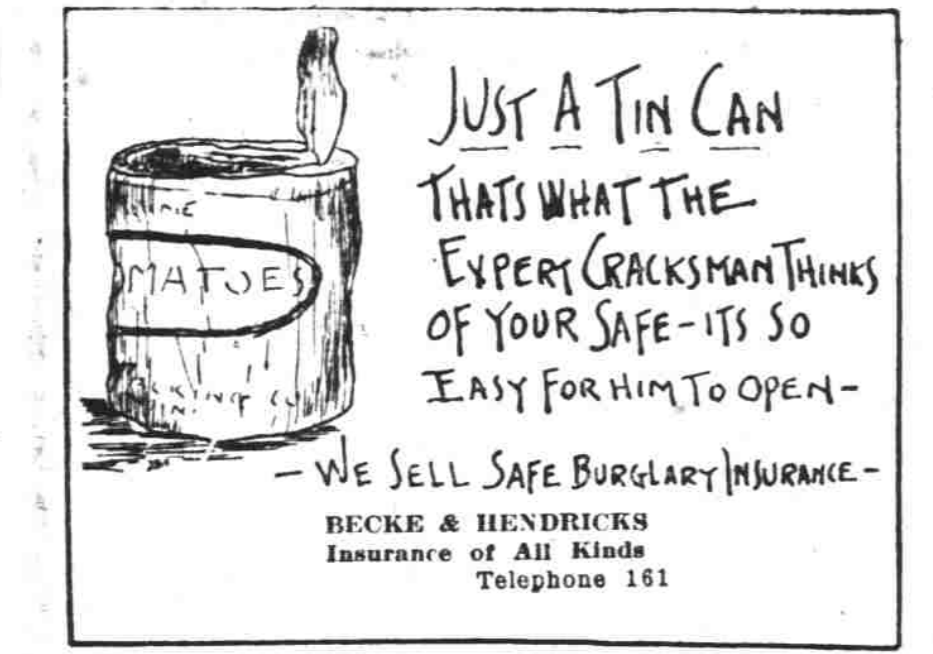 JUST A TIN CAN
THATS WHAT THE
EXPERT CRACKSMAN THINKS
OF YOUR SAFE - ITS SO
EASY FOR HIM TO OPEN -
MATOES
- WE SELL SAFE BURGLARY INSURANCE -
BECKE & HENDRICKS
Insurance of All Kinds
Telephone 161